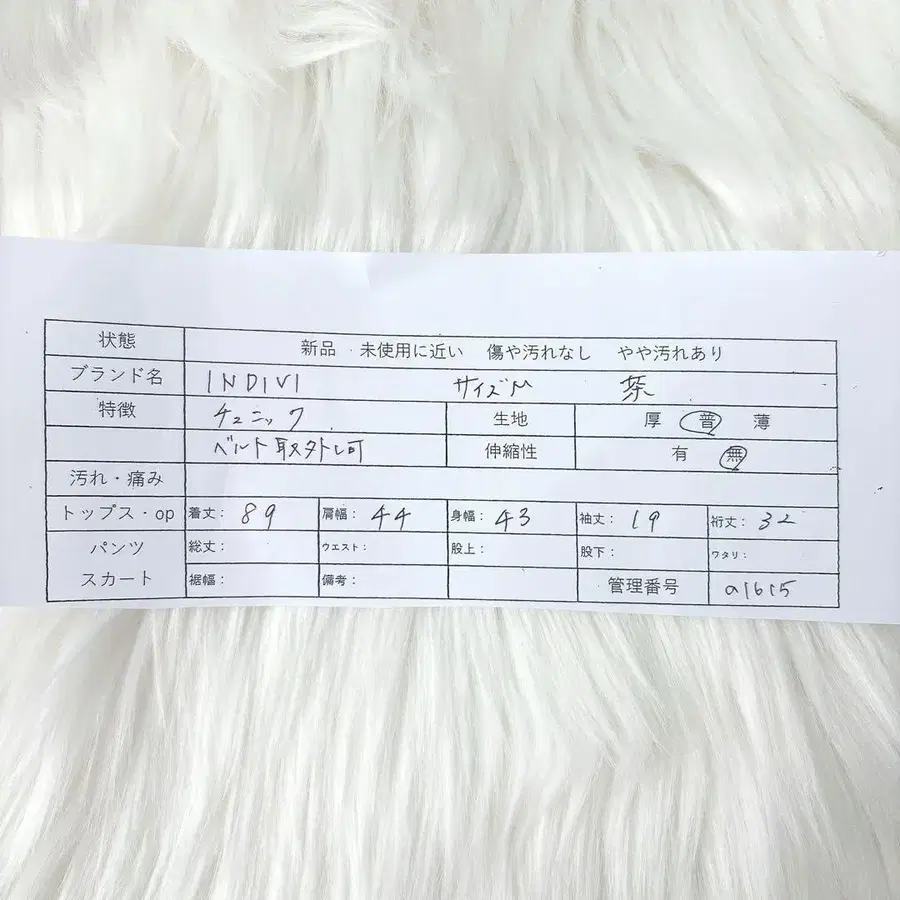 状態 新品 未使用に近い 傷や汚れなし やや汚れあり
ブランド名 INDIVI サイズM 茶
特徴 チュニック 生地 厚 普 薄
ベルト取り外し可 伸縮性 有 無
汚れ・痛み
トップス・op 着丈: 89 肩幅: 44 身幅: 43 袖丈: 19 裄丈: 32
パンツ 総丈: ウエスト: 股上: 股下: ワタリ:
スカート 裾幅: 備考: 管理番号 a1615